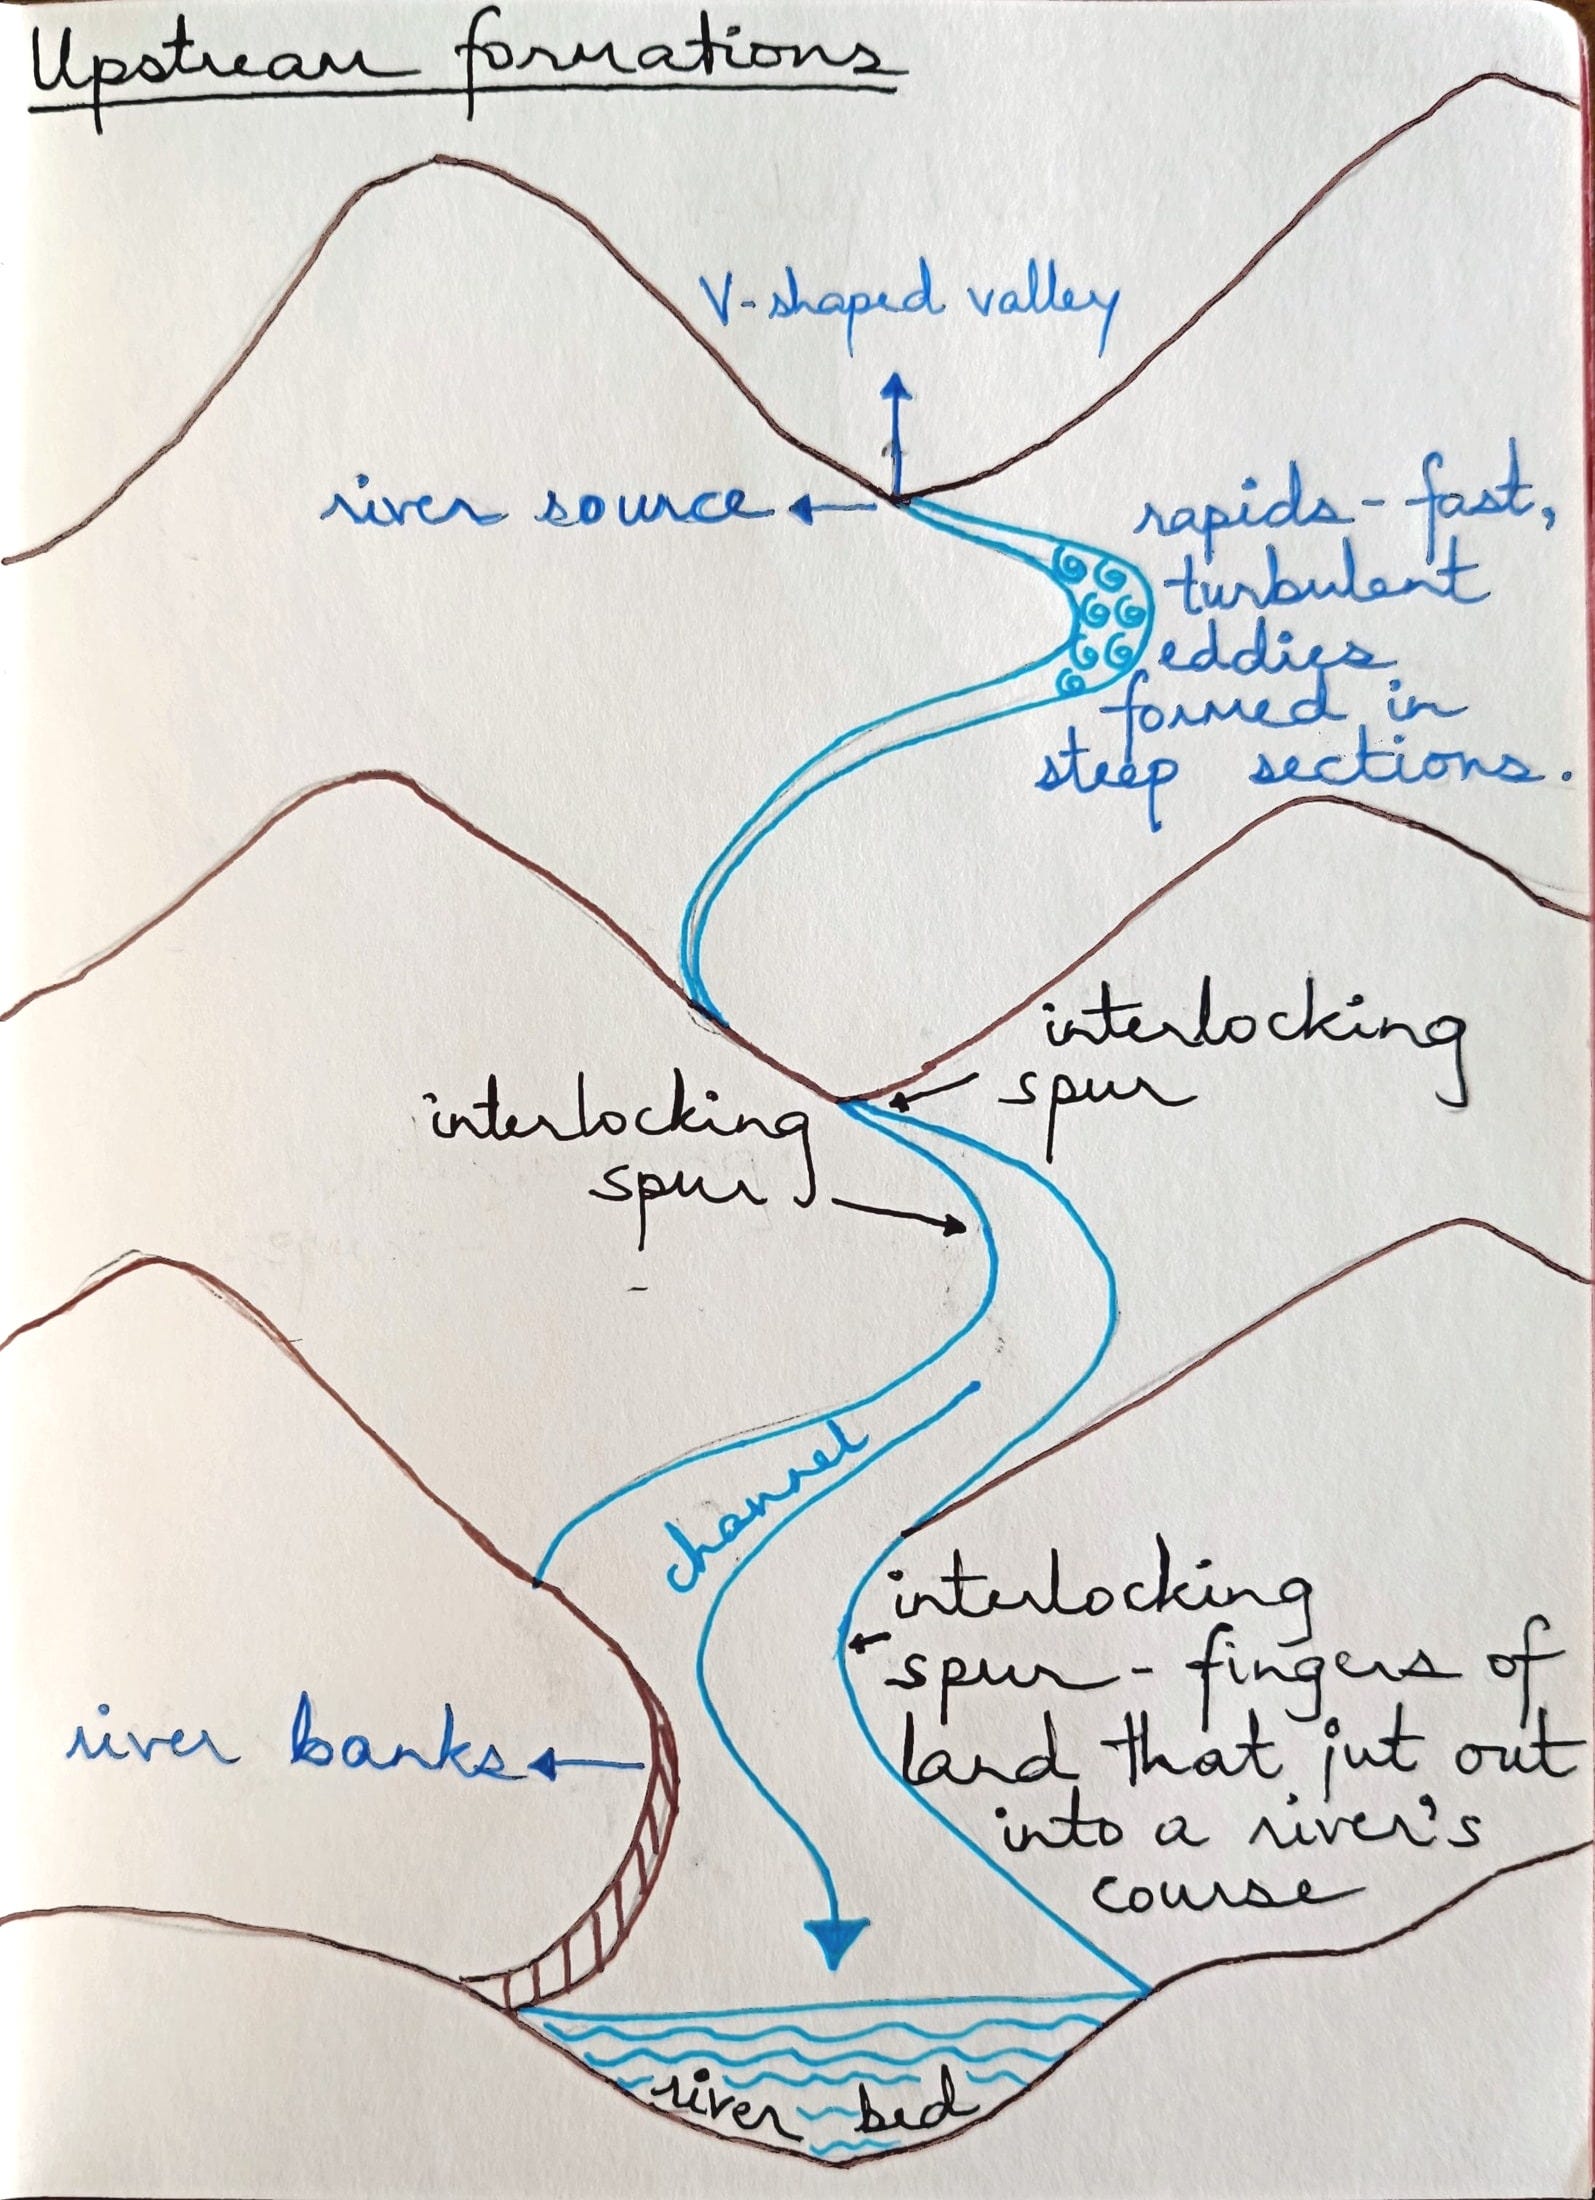 Upstream formations
V-shaped valley
river source
rapids - fast,
turbulent
eddies
formed in
steep sections.
interlocking
spur
interlocking
spur
channel
interlocking
spur - fingers of
land that jut out
into a river's
course
river banks
river bed